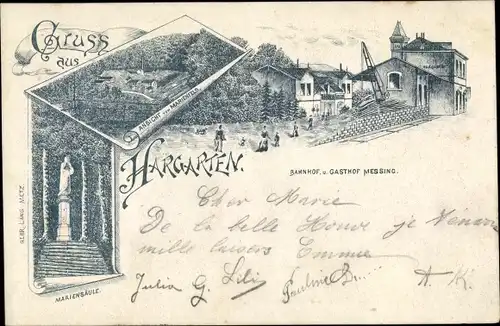 Gruss
aus
ANSICHT VON MARIENTHAL
HARGARTEN.
BAHNHOF. U. GASTHOF MESSING.
GEBR. LANG, METZ.
MARIENSÄULE.
Cher Marie
De la belle Houve je
mille baisers Emma
Julia G. Lili
Pauline
A. K.